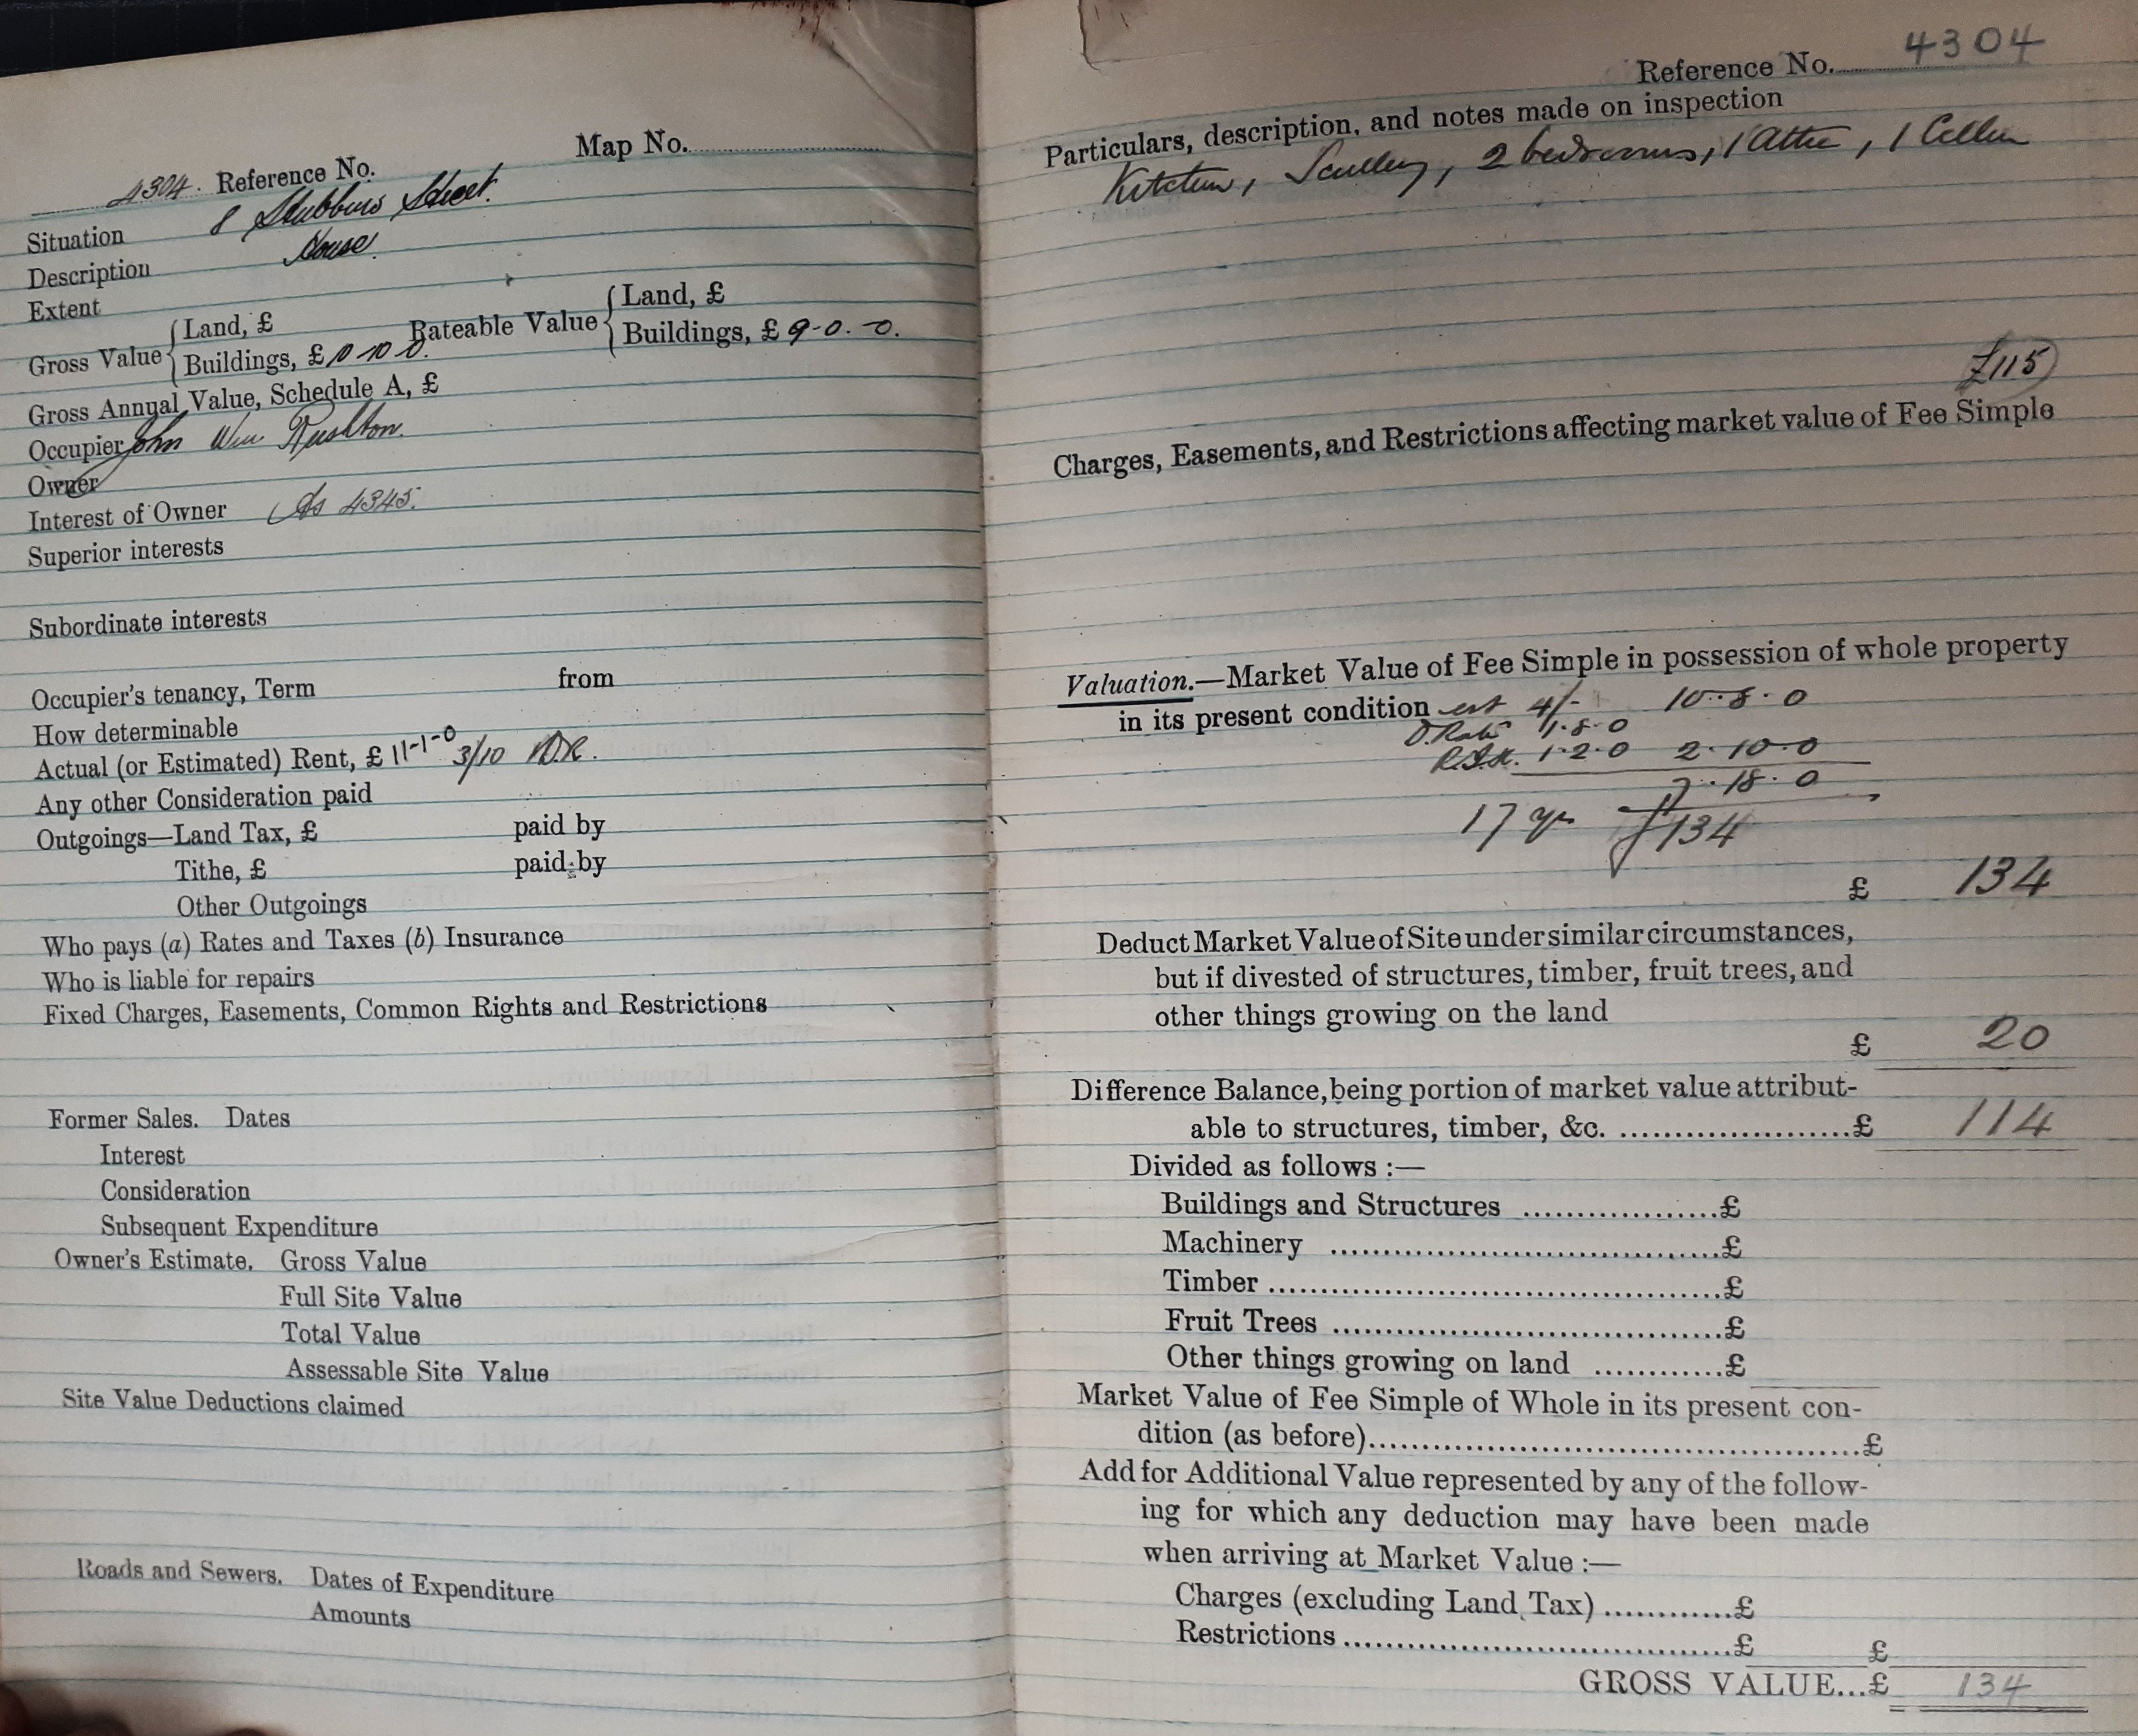 Map No.
4304. Reference No.
Situation 8 Stubbins Street.
Description House.
Extent
Gross Value { Land, £
Buildings, £ 10 10 0.
Rateable Value { Land, £
Buildings, £ 9-0.-0.
Gross Annual Value, Schedule A, £
Occupier John Wm Rushton.
Owner
Interest of Owner As 4345.
Superior interests
Subordinate interests
Occupier's tenancy, Term from
How determinable
Actual (or Estimated) Rent, £ 11-1-0 3/10
Any other Consideration paid
Outgoings—Land Tax, £ paid by
Tithe, £ paid by
Other Outgoings
Who pays (a) Rates and Taxes (b) Insurance
Who is liable for repairs
Fixed Charges, Easements, Common Rights and Restrictions
Former Sales. Dates
Interest
Consideration
Subsequent Expenditure
Owner's Estimate. Gross Value
Full Site Value
Total Value
Assessable Site Value
Site Value Deductions claimed
Roads and Sewers. Dates of Expenditure
Amounts
Reference No. 4304
Particulars, description, and notes made on inspection
Kitchen, Scullery, 2 bedrooms, 1 Attic, 1 Cellar
£115
Charges, Easements, and Restrictions affecting market value of Fee Simple
Valuation.—Market Value of Fee Simple in possession of whole property
in its present condition est 4/- 10.8.0
1.8.0
1.2.0 2.10.0
7.18.0
17 yrs £134
£ 134
Deduct Market Value of Site under similar circumstances,
but if divested of structures, timber, fruit trees, and
other things growing on the land
£ 20
Difference Balance, being portion of market value attribut-
able to structures, timber, &c. ......................£ 114
Divided as follows :—
Buildings and Structures ..................£
Machinery ....................................£
Timber ..........................................£
Fruit Trees ...................................£
Other things growing on land ............£
Market Value of Fee Simple of Whole in its present con-
dition (as before)..............................................£
Add for Additional Value represented by any of the follow-
ing for which any deduction may have been made
when arriving at Market Value :—
Charges (excluding Land Tax) ............£
Restrictions .....................................£ £
GROSS VALUE...£ 134